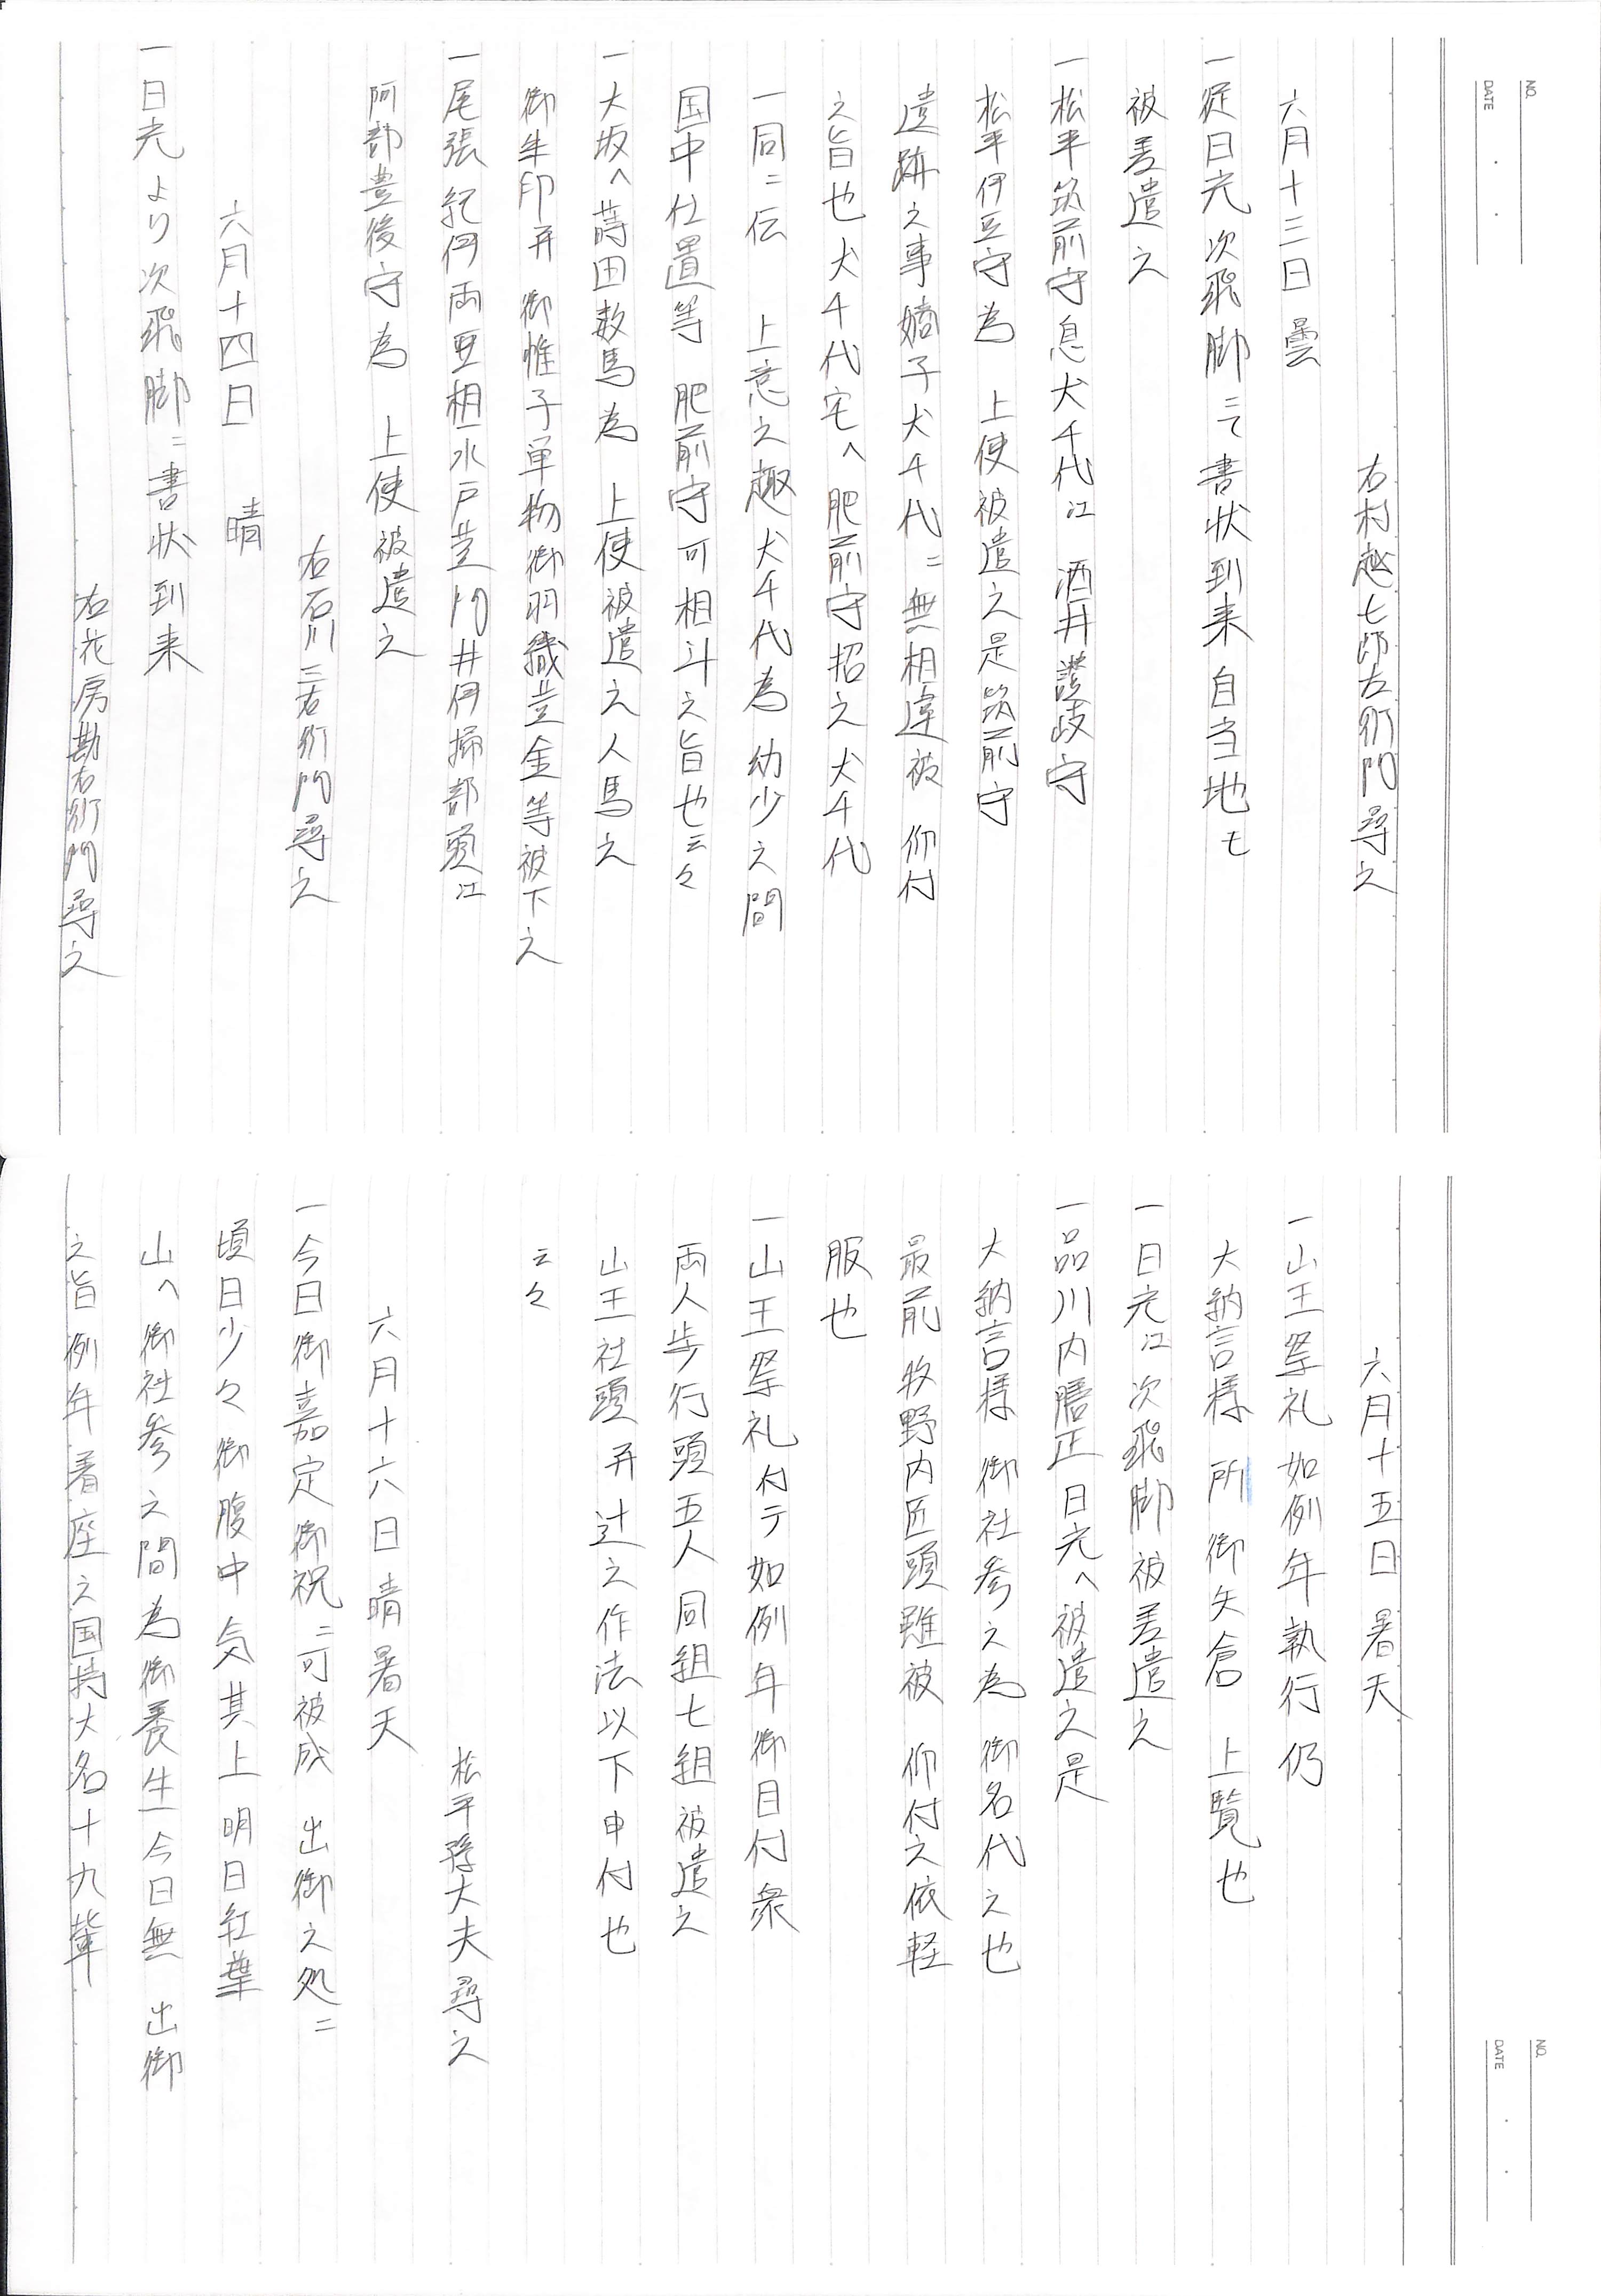 NO.
DATE
右村越七郎左衛門尋之
六月十三日 曇
一従日光次飛脚ニて書状到来自当地モ
被差遣之
一松平筑前守息犬千代江 酒井讃岐守
松平伊豆守為 上使被遣之是筑前守
遺跡之事嫡子犬千代ニ無相違被 仰付
之旨也犬千代宅へ肥前守招之犬千代
一同ニ伝 上意之趣犬千代為幼少之間
国中仕置等 肥前守可相斗之旨也云々
一大坂へ蒔田数馬為 上使被遣之人馬之
御朱印并 御帷子単物御羽織並金等被下之
一尾張紀伊両亜相水戸黄門井伊掃部頭江
阿部豊後守為 上使被遣之
右石川三右衛門尋之
六月十四日 晴
一日光より次飛脚ニ書状到来
右花房勘右衛門尋之
NO.
DATE
六月十五日 暑天
一山王祭礼如例年執行仍
大納言様 所御矢倉 上覧也
一日光江次飛脚被差遣之
一品川内膳正日光へ被遣之是
大納言様 御社参之為 御名代之也
最前牧野内匠頭雖被 仰付之依軽
服也
一山王祭礼付テ如例年御目付衆
両人歩行頭五人同組七組被遣之
山王社頭并辻之作法以下申付也
云々
松平孫大夫尋之
六月十六日 晴 暑天
一今日御嘉定御祝ニ可被成 出御之処ニ
頃日少々御腹中気其上明日紅葉
山へ御社参之間為御養生今日無 出御
之旨例年着座之国持大名十九輩